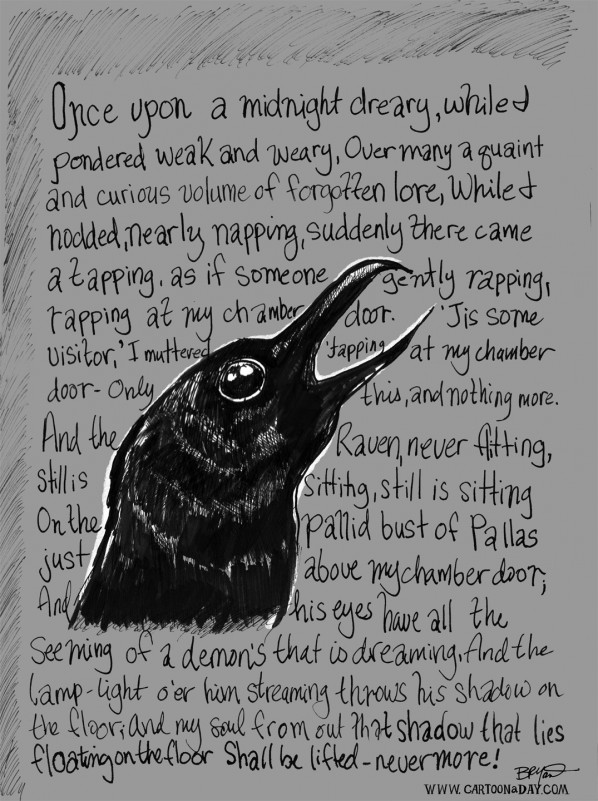 Once upon a midnight dreary, while I
pondered weak and weary, Over many a quaint
and curious volume of forgotten lore, While I
nodded, nearly napping, suddenly there came
a tapping. as if someone gently rapping,
rapping at my chamber door. 'Tis some
visitor,' I muttered 'tapping at my chamber
door - Only this, and nothing more.
And the Raven, never flitting,
Still is sitting, still is sitting
On the pallid bust of Pallas
just above my chamber door;
And his eyes have all the
Seeming of a demon's that is dreaming, And the
lamp-light o'er him streaming throws his shadow on
the floor; And my soul from out that shadow that lies
floating on the floor Shall be lifted - nevermore!
Bryant
WWW.CARTOONaDAY.COM